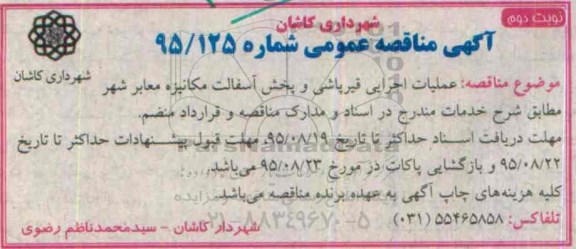 نوبت دوم
شهرداری کاشان
آگهی مناقصه عمومی شماره ۹۵/۱۲۵
شهرداری کاشان
موضوع مناقصه: عملیات اجرایی قیرپاشی و پخش آسفالت مکانیزه معابر شهر
مطابق شرح خدمات مندرج در اسناد و مدارک مناقصه و قرارداد منضم.
مهلت دریافت اسناد حداکثر تا تاریخ ۹۵/۰۸/۱۹ مهلت قبول پیشنهادات حداکثر تا تاریخ
۹۵/۰۸/۲۲ و بازگشایی پاکات در مورخ ۹۵/۰۸/۲۳ می‌باشد.
کلیه هزینه‌های چاپ آگهی به عهده برنده مناقصه می‌باشد.
تلفاکس: ۵۵۴۶۵۸۵۸ (۰۳۱)
۰۲۱-۸۸۳۴۹۶۷۰-۵
شهردار کاشان - سیدمحمدناظم رضوی